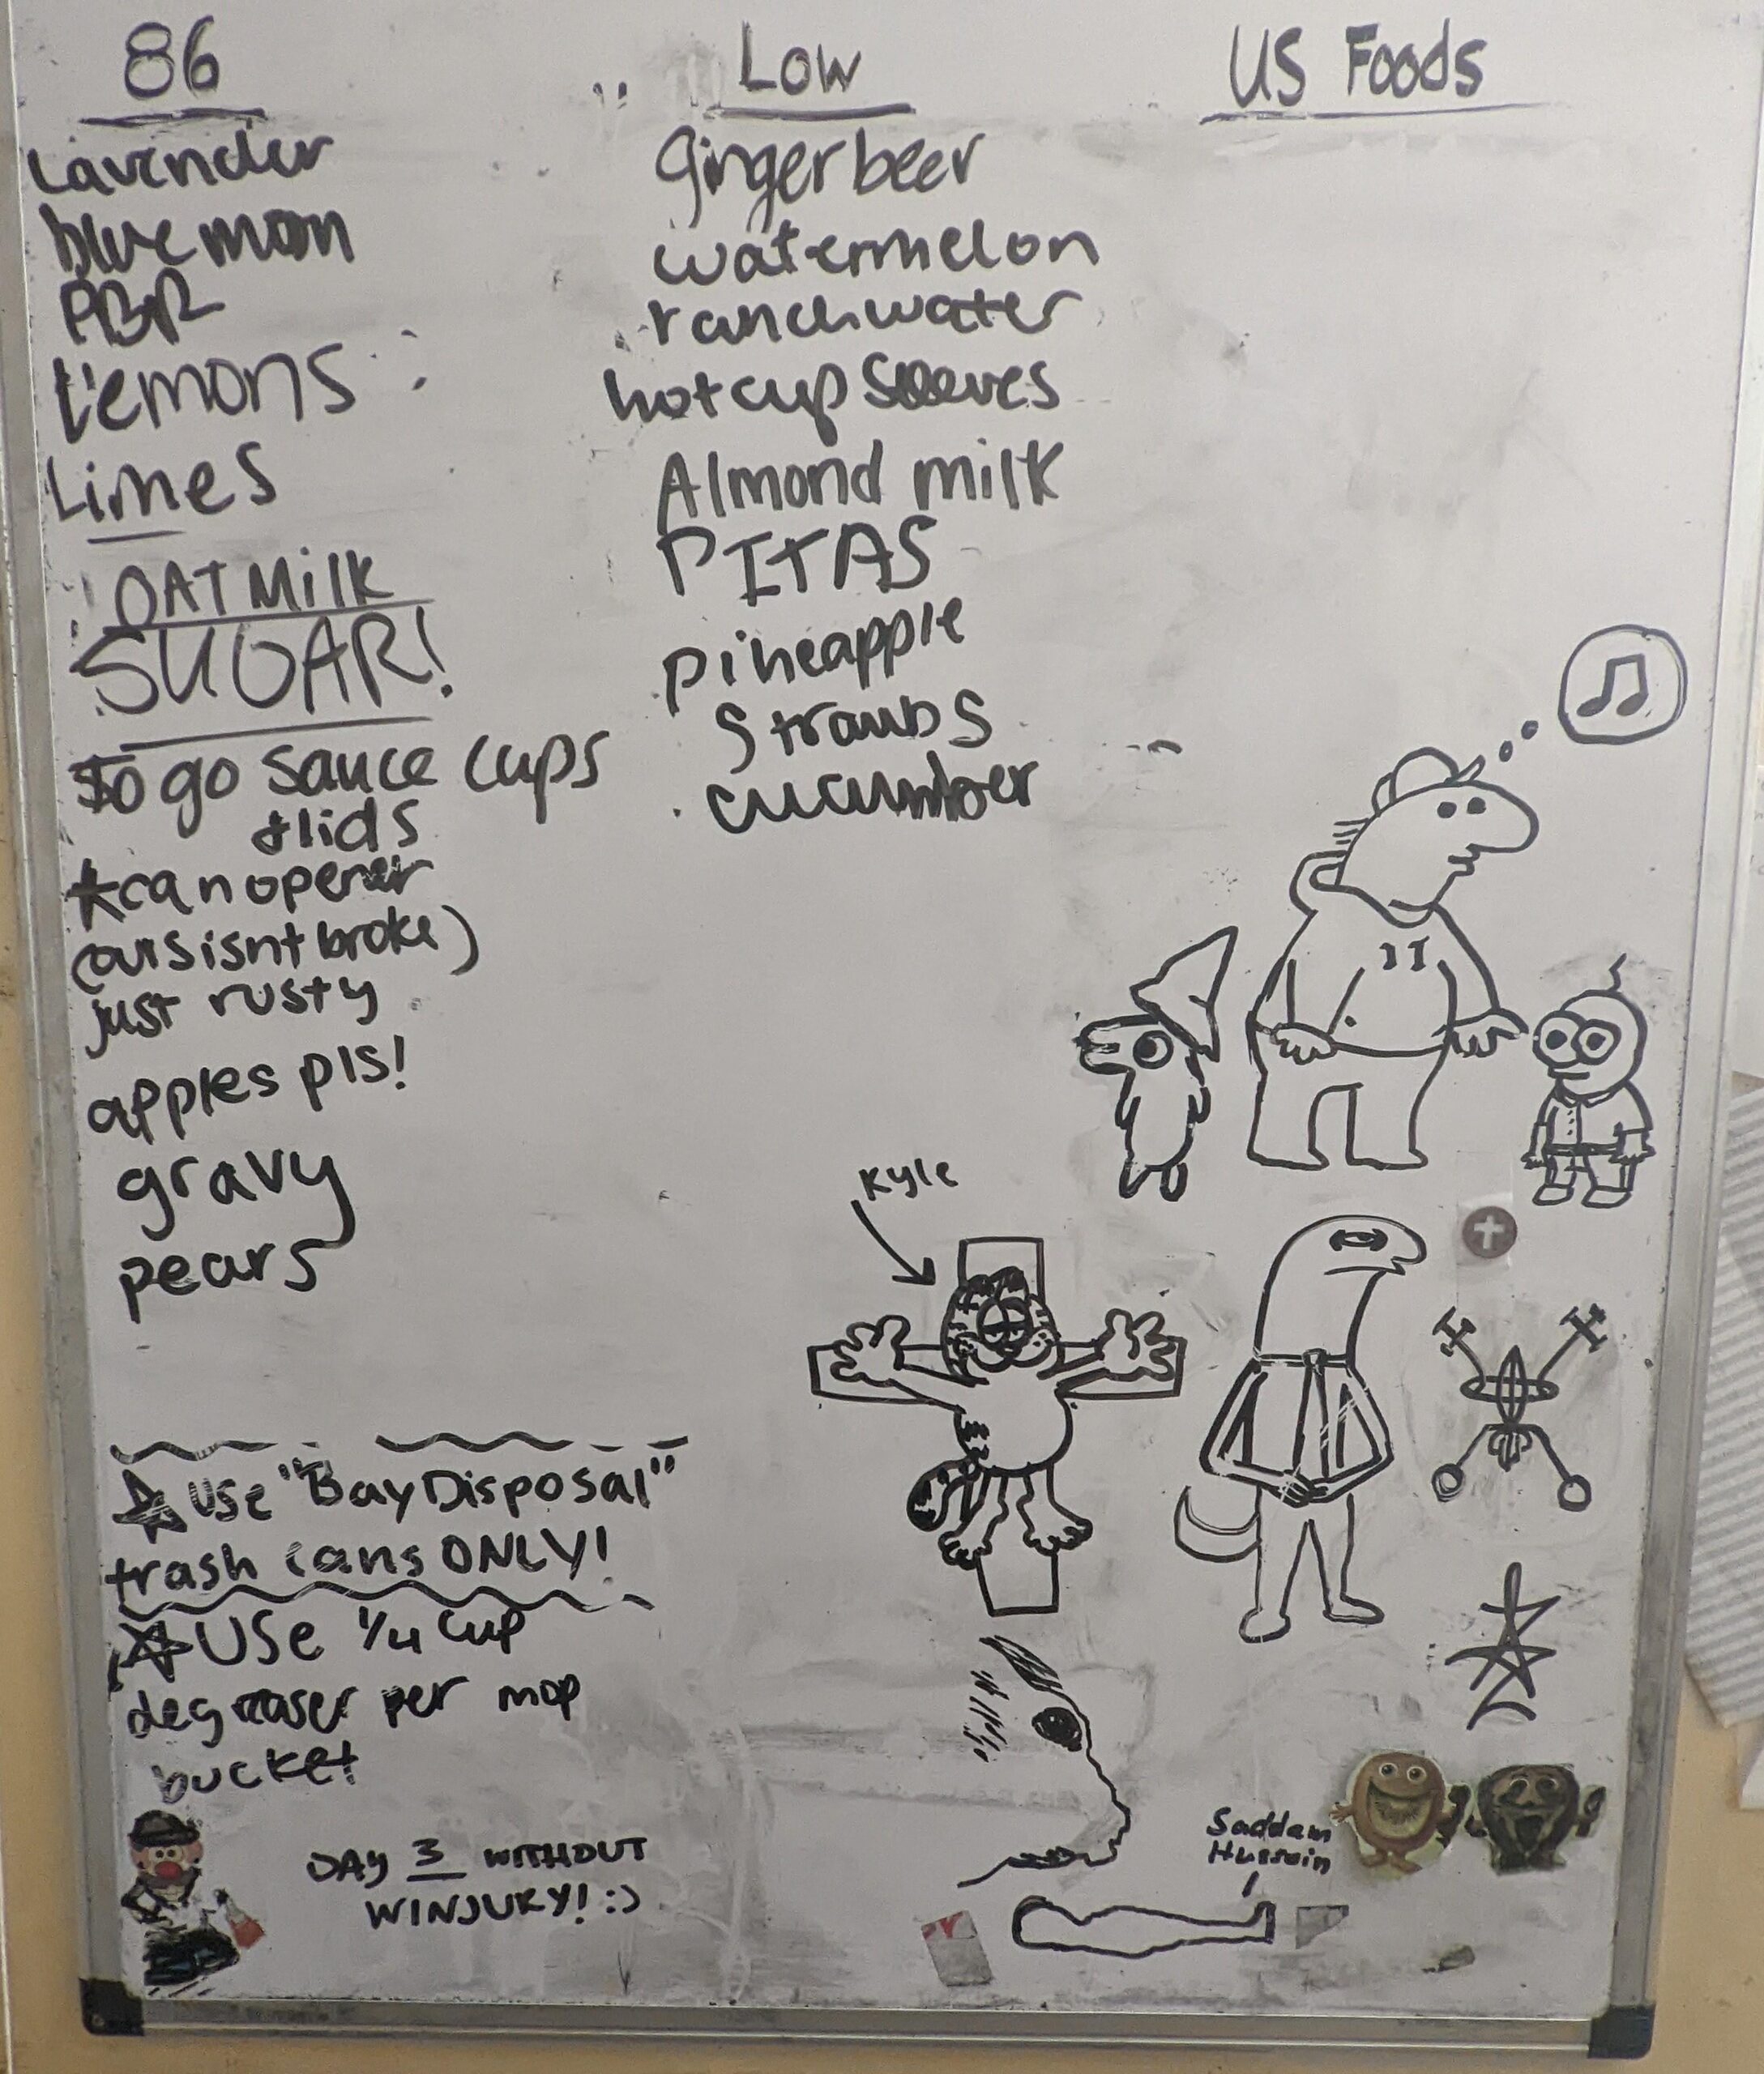 86
Lavender
blue moon
PBR
Lemons
Limes
OAT Milk
SUGAR!
To go sauce cups
+ lids
*can opener
(ours isnt broke)
just rusty
apples pls!
gravy
pears
Low
Ginger beer
watermelon
ranch water
hot cup sleeves
Almond milk
PITAS
pineapple
Strawbs
cucumber
US Foods
Kyle
☆ use "Bay Disposal"
trash cans ONLY!
☆ USE 1/4 cup
degreaser per mop
bucket
DAY 3 WITHOUT
WINJURY! :)
Saddam
Hussain